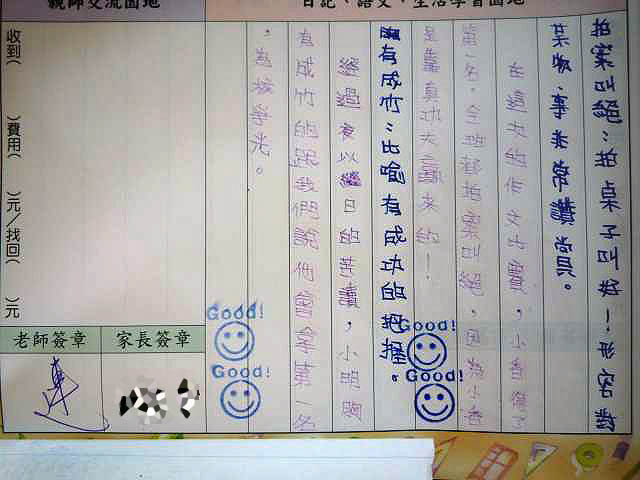 親師交流園地
日記、語文、生活學習園地
拍案叫絕:拍桌子叫好!形容對
某物、事非常讚賞。
在這次的作文比賽,小香得了
第一名,全班都拍案叫絕,因為小香
是靠真功夫贏來的!
胸有成竹:比喻有成功的把握。
經過夜以繼日的苦讀,小明胸
有成竹的跟我們說他會拿第一名
,為校爭光。
收到( )費用( )元/找回( )元
老師簽章
家長簽章
Good!
Good!
Good!
Good!